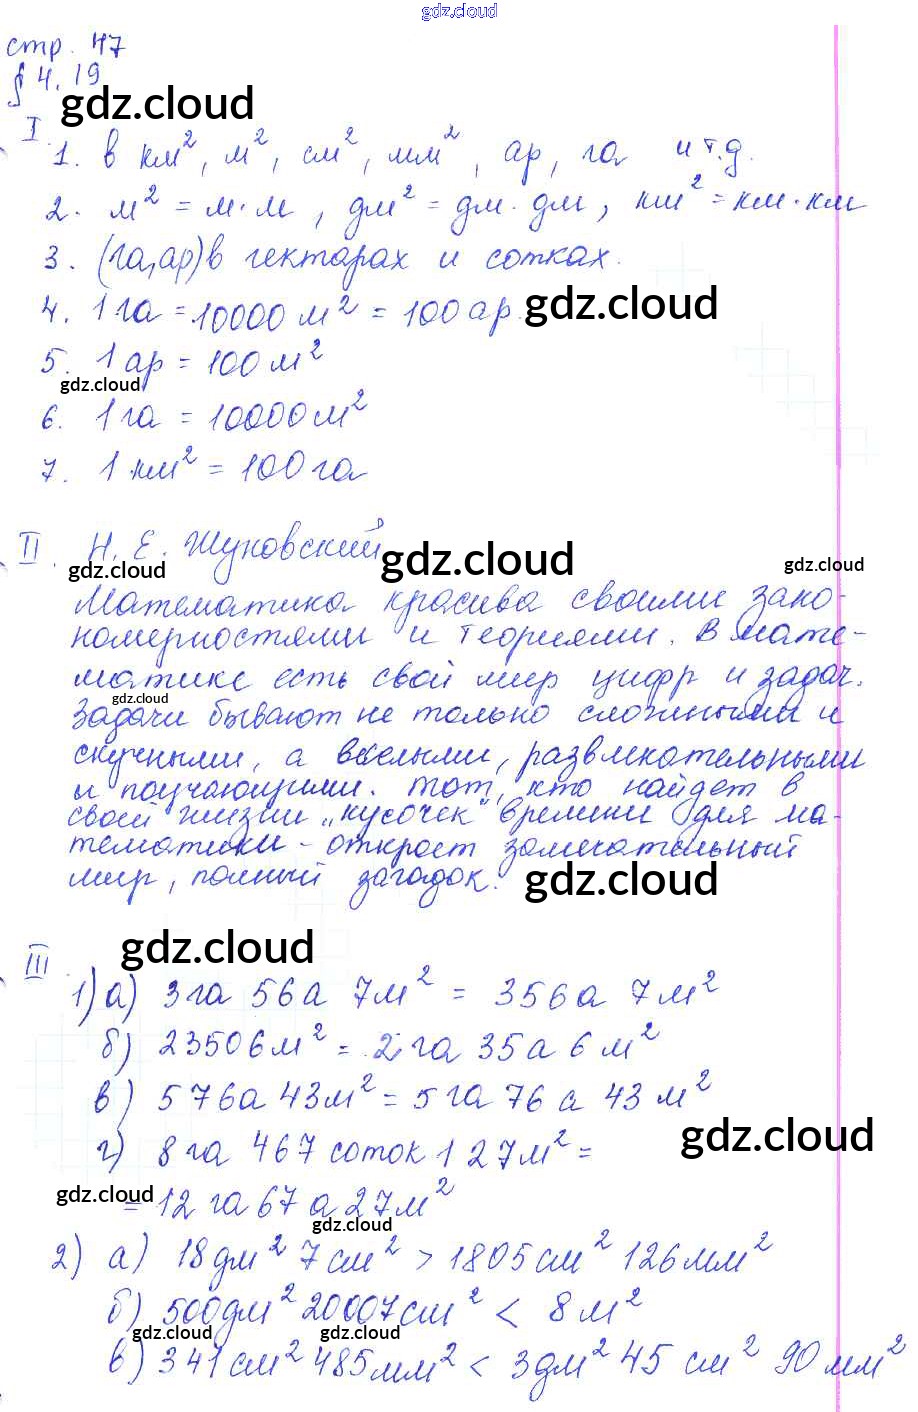 gdz.cloud
стр. 47
§ 4.19
gdz.cloud
I
1. в км², м², см², мм², ар, га и т.д.
2. м² = м·м, дм² = дм·дм, км² = км·км
3. (га, ар) в гектарах и сотках.
4. 1 га = 10000 м² = 100 ар. gdz.cloud
5. 1 ар = 100 м²
gdz.cloud
6. 1 га = 10000 м²
7. 1 км² = 100 га
II. Н. Е. Жуковский gdz.cloud
gdz.cloud gdz.cloud
Математика красива своими зако-
номерностями и теориями. В мате-
матике есть свой мир цифр и задач.
gdz.cloud
Задачи бывают не только сложными и
скучными, а веселыми, развлекательными
и поучающими. Тот, кто найдет в
своей жизни „кусочек" времени для ма-
тематики - откроет замечательный
мир, полный загадок. gdz.cloud
III gdz.cloud
1) а) 3 га 56 а 7 м² = 356 а 7 м²
б) 23506 м² = 2 га 35 а 6 м²
в) 576 а 43 м² = 5 га 76 а 43 м²
gdz.cloud
г) 8 га 467 соток 127 м² =
gdz.cloud
= 12 га 67 а 27 м²
gdz.cloud
2) а) 18 дм² 7 см² > 1805 см² 126 мм²
б) 500 дм² 20007 см² < 8 м²
gdz.cloud gdz.cloud
в) 341 см² 485 мм² < 3 дм² 45 см² 90 мм²